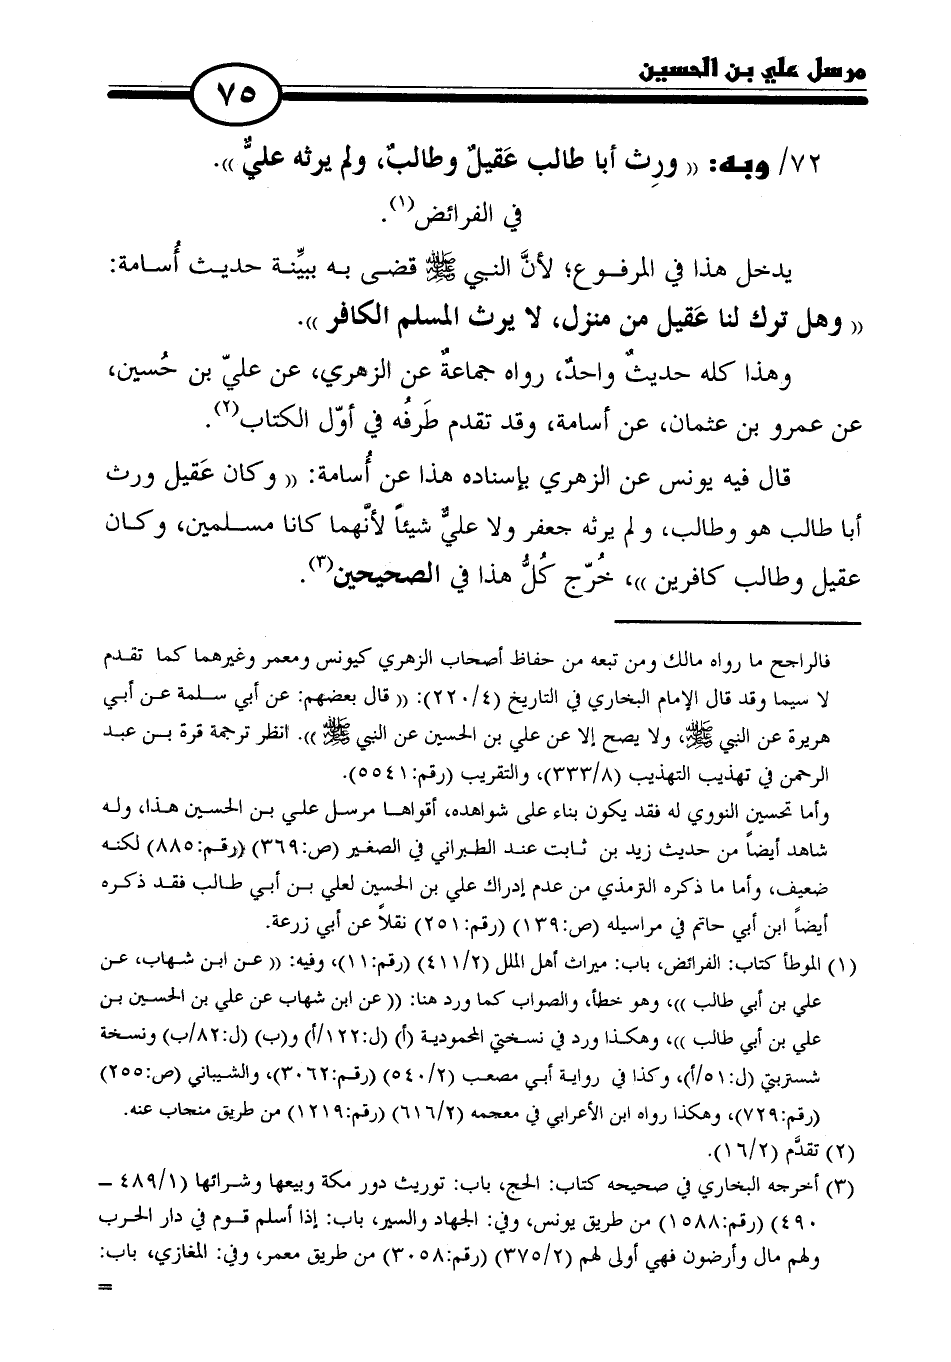 مرسل علي بن الحسين
٧٥
٧٢/ وبه: «ورِث أبا طالب عَقيلٌ وطالبٌ، ولم يرثه عليٌّ».
في الفرائض(١).
يدخل هذا في المرفوع؛ لأنَّ النبي ﷺ قضى به ببيِّنة حديث أُسامة:
«وهل ترك لنا عَقيل من منزل، لا يرث المسلم الكافر».
وهذا كله حديثٌ واحدٌ، رواه جماعةٌ عن الزهري، عن عليّ بن حُسين،
عن عمرو بن عثمان، عن أسامة، وقد تقدم طَرفُه في أوّل الكتاب(٢).
قال فيه يونس عن الزهري بإسناده هذا عن أُسامة: «وكان عَقيل ورث
أبا طالب هو وطالب، ولم يرثه جعفر ولا عليٌّ شيئاً لأنَّهما كانا مسلمين، وكان
عقيل وطالب كافرين»، خُرّج كُلُّ هذا في الصحيحين(٣).
فالراجح ما رواه مالك ومن تبعه من حفاظ أصحاب الزهري كيونس ومعمر وغيرهما كما تقدم
لا سيما وقد قال الإمام البخاري في التاريخ (٢٢٠/٤): «قال بعضهم: عن أبي سلمة عن أبي
هريرة عن النبي ﷺ، ولا يصح إلا عن علي بن الحسين عن النبي ﷺ». انظر ترجمة قرة بن عبد
الرحمن في تهذيب التهذيب (٣٣٣/٨)، والتقريب (رقم:٥٥٤١).
وأما تحسين النووي له فقد يكون بناء على شواهده، أقواها مرسل علي بن الحسين هذا، وله
شاهد أيضاً من حديث زيد بن ثابت عند الطبراني في الصغير (ص:٣٦٩) (رقم:٨٨٥) لكنه
ضعيف، وأما ما ذكره الترمذي من عدم إدراك علي بن الحسين لعلي بن أبي طالب فقد ذكره
أيضاً ابن أبي حاتم في مراسيله (ص:١٣٩) (رقم:٢٥١) نقلاً عن أبي زرعة.
(١) الموطأ كتاب: الفرائض، باب: ميراث أهل الملل (٤١١/٢) (رقم:١١)، وفيه: «عن ابن شهاب، عن
علي بن أبي طالب»، وهو خطأ، والصواب كما ورد هنا: «عن ابن شهاب عن علي بن الحسين بن
علي بن أبي طالب»، وهكذا ورد في نسختي المحمودية (أ) (ل:١٢٢/أ) و(ب) (ل:٨٢/ب) ونسخة
شستربتي (ل:٥١/أ)، وكذا في رواية أبي مصعب (٥٤٠/٢) (رقم:٣٠٦٢)، والشيباني (ص:٢٥٥)
(رقم:٧٢٩)، وهكذا رواه ابن الأعرابي في معجمه (٦١٦/٢) (رقم:١٢١٩) من طريق منجاب عنه.
(٢) تقدَّم (١٦/٢).
(٣) أخرجه البخاري في صحيحه كتاب: الحج، باب: توريث دور مكة وبيعها وشرائها (٤٨٩/١ –
٤٩٠) (رقم:١٥٨٨) من طريق يونس، وفي: الجهاد والسير، باب: إذا أسلم قوم في دار الحرب
ولهم مال وأرضون فهي أولى لهم (٣٧٥/٢) (رقم:٣٠٥٨) من طريق معمر، وفي: المغازي، باب:
=